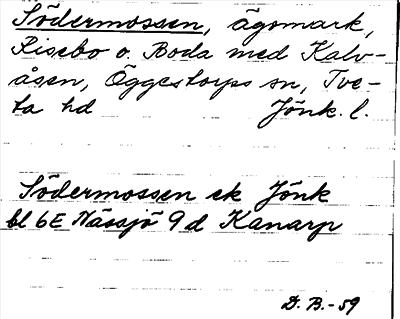 Södermossen, ägomark,
Risebo o. Boda med Kalv-
åsen, Öggestorps sn, Tve-
ta hd Jönk. l.
Södermossen ek Jönk
bl 6E Nässjö 9 d Kanarp
D. B. - 59